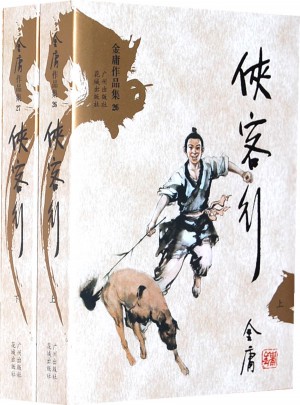 金庸作品集 27
俠客行
下
广州出版社
花城出版社
金庸作品集 26
俠客行
上
广州出版社
花城出版社
金庸作品集 26
广州出版社
花城出版社
俠客行
上
金庸